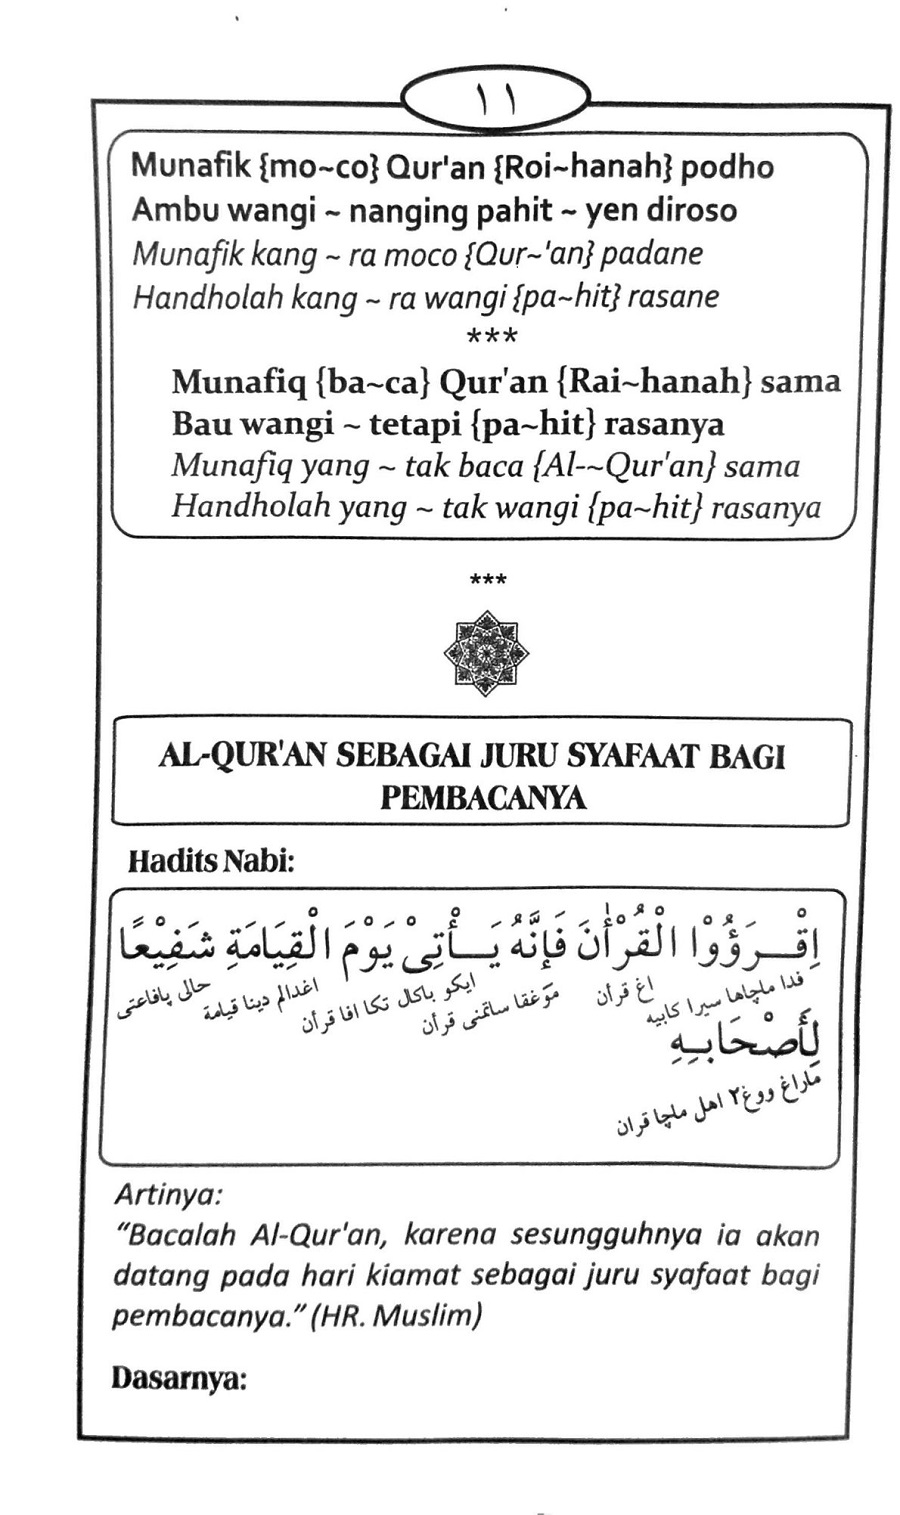 ١١
Munafik {mo~co} Qur'an {Roi~hanah} podho
Ambu wangi ~ nanging pahit ~ yen diroso
Munafik kang ~ ra moco {Qur~'an} padane
Handholah kang ~ ra wangi {pa~hit} rasane
***
Munafiq {ba~ca} Qur'an {Rai~hanah} sama
Bau wangi ~ tetapi {pa~hit} rasanya
Munafiq yang ~ tak baca {Al-~Qur'an} sama
Handholah yang ~ tak wangi {pa~hit} rasanya
***
AL-QUR'AN SEBAGAI JURU SYAFAAT BAGI
PEMBACANYA
Hadits Nabi:
اِقْـرَؤُوْا الْقُرْأٰنَ فَإِنَّهُ يَـأْتِىْ يَوْمَ الْقِيَامَةِ شَفِيْعًا
فدا ملچاها سيرا كابيه اغ قرأن موغقا ساتمنى قرأن ايكو باكال تكا افا قرأن اغدالم دينا قيامة حالى يافاعتى
لِأَصْحَابِـهِ
ماراغ ووغ٢ اهل ملچا قران
Artinya:
“Bacalah Al-Qur'an, karena sesungguhnya ia akan
datang pada hari kiamat sebagai juru syafaat bagi
pembacanya.” (HR. Muslim)
Dasarnya: